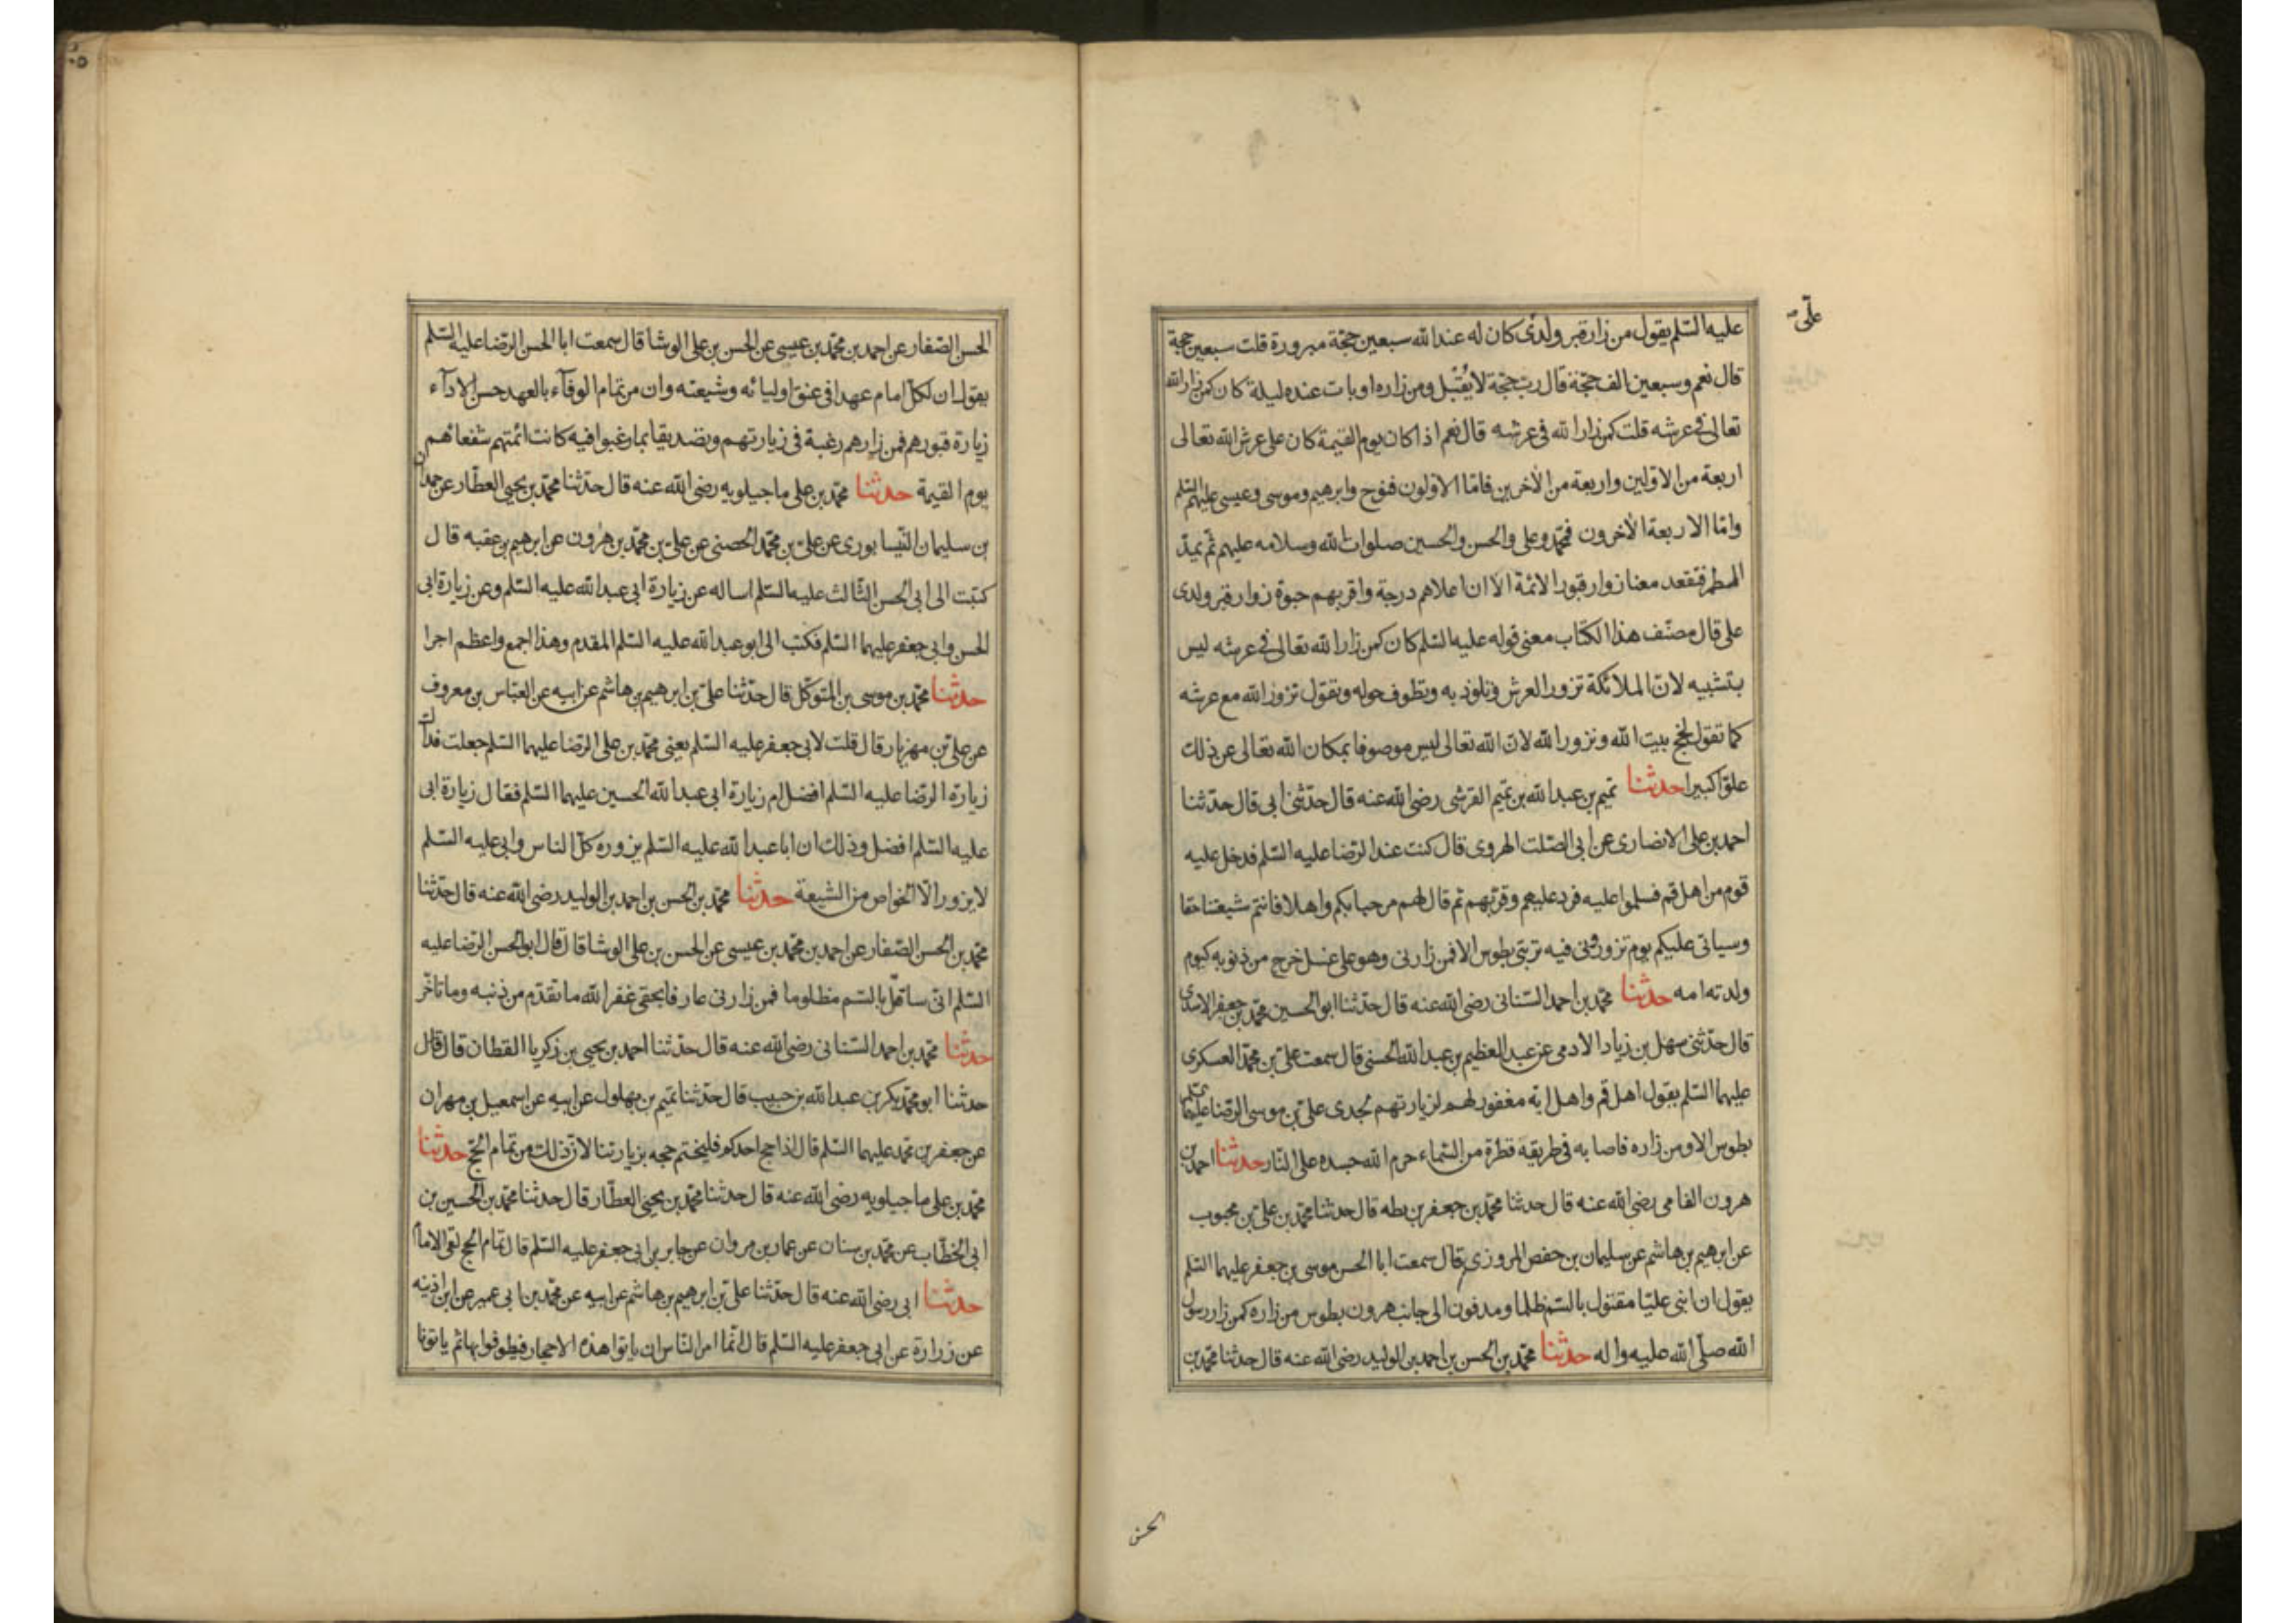 علىّ
عليه السّلم يقول من زار قبر ولدى كان له عند الله سبعين حجّة مبرورة قلت سبعين حجة
قال نعم وسبعين الف حجّة قال ربّ حجّة لا يُقبل ومن زاره او بات عنده ليلة كان كمن زار الله
تعالى فى عرشه قلت كمن زار الله فى عرشه قال نعم اذا كان يوم القيمة كان على عرش الله تعالى
اربعة من الاوّلين واربعة من الاخرين فامّا الاوّلون فنوح وابرهيم وموسى وعيسى عليهم السّلم
وامّا الاربعة الاخرون فمحمّد وعلى والحسن والحسين صلوات الله وسلامه عليهم ثم يمدّ
المطمر فتقعد معنا زوار قبور الائمة الا ان اعلاهم درجة واقربهم حبوة زوار قبر ولدى
على قال مصنّف هذا الكتاب معنى قوله عليه السّلم كان كمن زار الله تعالى فى عرشه ليس
بتشبيه لانّ الملائكة تزور العرش وتلوذ به وتطوف حوله وتقول تزور الله مع عرشه
كما تقول نحج بيت الله ونزور الله لانّ الله تعالى ليس موصوفا بمكان الله تعالى عن ذلك
علوّا كبيرا حدثنا تميم بن عبد الله بن تميم القرشى رضى الله عنه قال حدّثنى ابى قال حدّثنا
احمد بن على الانصارى عن ابى الصّلت الهروى قال كنت عند الرّضا عليه السّلم فدخل عليه
قوم من اهل قم فسلموا عليه فرد عليهم وقرّبهم ثم قال لهم مرحبا بكم واهلا فانتم شيعتنا حقا
وسياتى عليكم يوم تزورونى فيه تربتى بطوس الا فمن زارنى وهو على غسل خرج من ذنوبه كيوم
ولدته امه حدثنا محمّد بن احمد السّنانى رضى الله عنه قال حدّثنا ابو الحسين محمّد بن جعفر الاسدى
قال حدّثنى سهل بن زياد الادمى عن عبد العظيم بن عبد الله الحسنى قال سمعت علىّ بن محمّد العسكرى
عليهما السّلم يقول اهل قم واهل ابه مغفور لهم لزيارتهم لجدى علىّ بن موسى الرّضا عليهما السّلم
بطوس الا ومن زاره فاصابه فى طريقه قطرة من السّماء حرم الله جسده على النّار حدثنا احمد بن
هرون الفامى رضى الله عنه قال حدثنا محمّد بن جعفر بن بطه قال حدثنا محمّد بن علىّ بن محبوب
عن ابرهيم بن هاشم عن سليمان بن حفص المروزى قال سمعت ابا الحسن موسى بن جعفر عليهما السّلم
يقول ان ابنى عليّا مقتول بالسّم ظلما ومدفون الى جانب هرون بطوس من زاره كمن زار رسول
الله صلّى الله عليه واله حدثنا محمّد بن الحسن بن احمد بن الوليد رضى الله عنه قال حدثنا محمّد بن
الحسن
الحسن الصّفار عن احمد بن محمّد بن عيسى عن الحسن بن على الوشا قال سمعت ابا الحسن الرّضا عليه السّلم
يقول ان لكلّ امام عهدا فى عنق اوليائه وشيعته وان من تمام الوفآء بالعهد حسن الادآء
زيارة قبورهم فمن زارهم رغبة فى زيارتهم وتصديقا بما رغبوا فيه كانت ائمّتهم شفعائهم
يوم القيمة حدثنا محمّد بن على ماجيلويه رضى الله عنه قال حدّثنا محمّد بن يحيى العطّار عن حمدان
بن سليمان النّيسابورى عن علىّ بن محمّد الحصنى عن علىّ بن محمّد بن هرون عن ابرهيم بن عقبه قال
كتبت الى ابى الحسن الثّالث عليه السّلم اساله عن زيارة ابى عبد الله عليه السّلم وعن زيارة ابى
الحسن وابى جعفر عليهما السّلم فكتب الى ابو عبد الله عليه السّلم المقدم وهذا اجمع واعظم اجرا
حدثنا محمّد بن موسى بن المتوكّل قال حدّثنا علىّ بن ابرهيم بن هاشم عن ابيه عن العبّاس بن معروف
عن علىّ بن مهزيار قال قلت لابى جعفر عليه السّلم يعنى محمّد بن على الرّضا عليهما السّلم جعلت فداك
زيارة الرّضا عليه السّلم افضل ام زيارة ابى عبد الله الحسين عليهما السّلم فقال زيارة ابى
عليه السّلم افضل وذلك ان ابا عبد الله عليه السّلم يزوره كلّ الناس وابى عليه السّلم
لا يزوره الّا الخواص من الشيعة حدثنا محمّد بن الحسن بن احمد بن الوليد رضى الله عنه قال حدّثنا
محمّد بن الحسن الصّفار عن احمد بن محمّد بن عيسى عن الحسن بن على الوشا قال قال ابو الحسن الرّضا عليه
السّلم انى ساقتل بالسّم مظلوما فمن زارنى عارفا بحقى غفر الله ما تقدّم من ذنبه وما تاخّر
حدثنا محمّد بن احمد السّنانى رضى الله عنه قال حدّثنا احمد بن يحيى بن زكريا القطان قال قال
حدثنا ابو محمّد بكر بن عبد الله بن حبيب قال حدّثنا تميم بن بهلول عن ابيه عن اسمعيل بن مهران
عن جعفر بن محمّد عليهما السّلم قال اذا حج احدكم فليختم حجه بزيارتنا لانّ ذلك من تمام الحجّ حدثنا
محمّد بن على ماجيلويه رضى الله عنه قال حدثنا محمّد بن يحيى العطّار قال حدّثنا محمّد بن الحسين بن
ابى الخطّاب عن محمّد بن سنان عن عمار بن مروان عن جابر بن ابى جعفر عليه السّلم قال تمام الحج لقى الامام
حدثنا ابى رضى الله عنه قال حدّثنا علىّ بن ابرهيم بن هاشم عن ابيه عن محمّد بن ابى عمير عن ابن اذينه
عن زرارة عن ابى جعفر عليه السّلم قال انّما امر النّاس ان ياتوا هذه الاحجار فيطوفوا بها ثم ياتونا